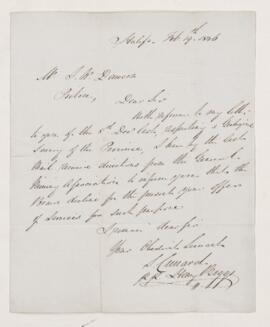 Halifax Feb. 19th 1846
Mr. J. W. Dawson
Pictou,
Dear Sir
With reference to my letter
to you of the 8th Decr last, respecting a Geological
Survey of the Province, I have by the last
Mail received directions from the General
Mining Association to inform you that the
Board decline for the present your offer
of Services for such purpose
I remain dear Sir
Your Obedient Servant
S Cunard
Henry Boggs